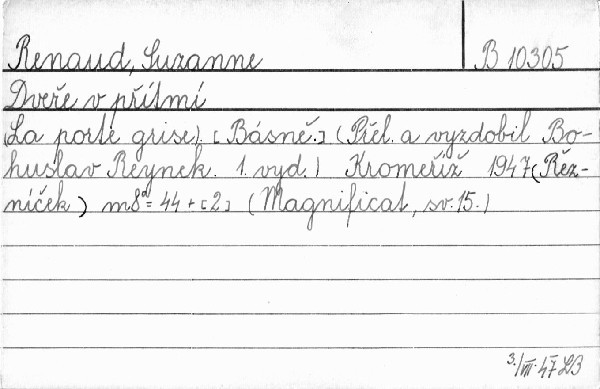 Renaud, Suzanne B 10305
Dveře v přítmí
(La porte grise) [Básně.] (Přel. a vyzdobil Bo-
huslav Reynek. 1. vyd.) Kroměříž 1947 (Řez-
níček) m8° = 44 + [2] (Magnificat, sv. 15.)
3./VII. 47 LB